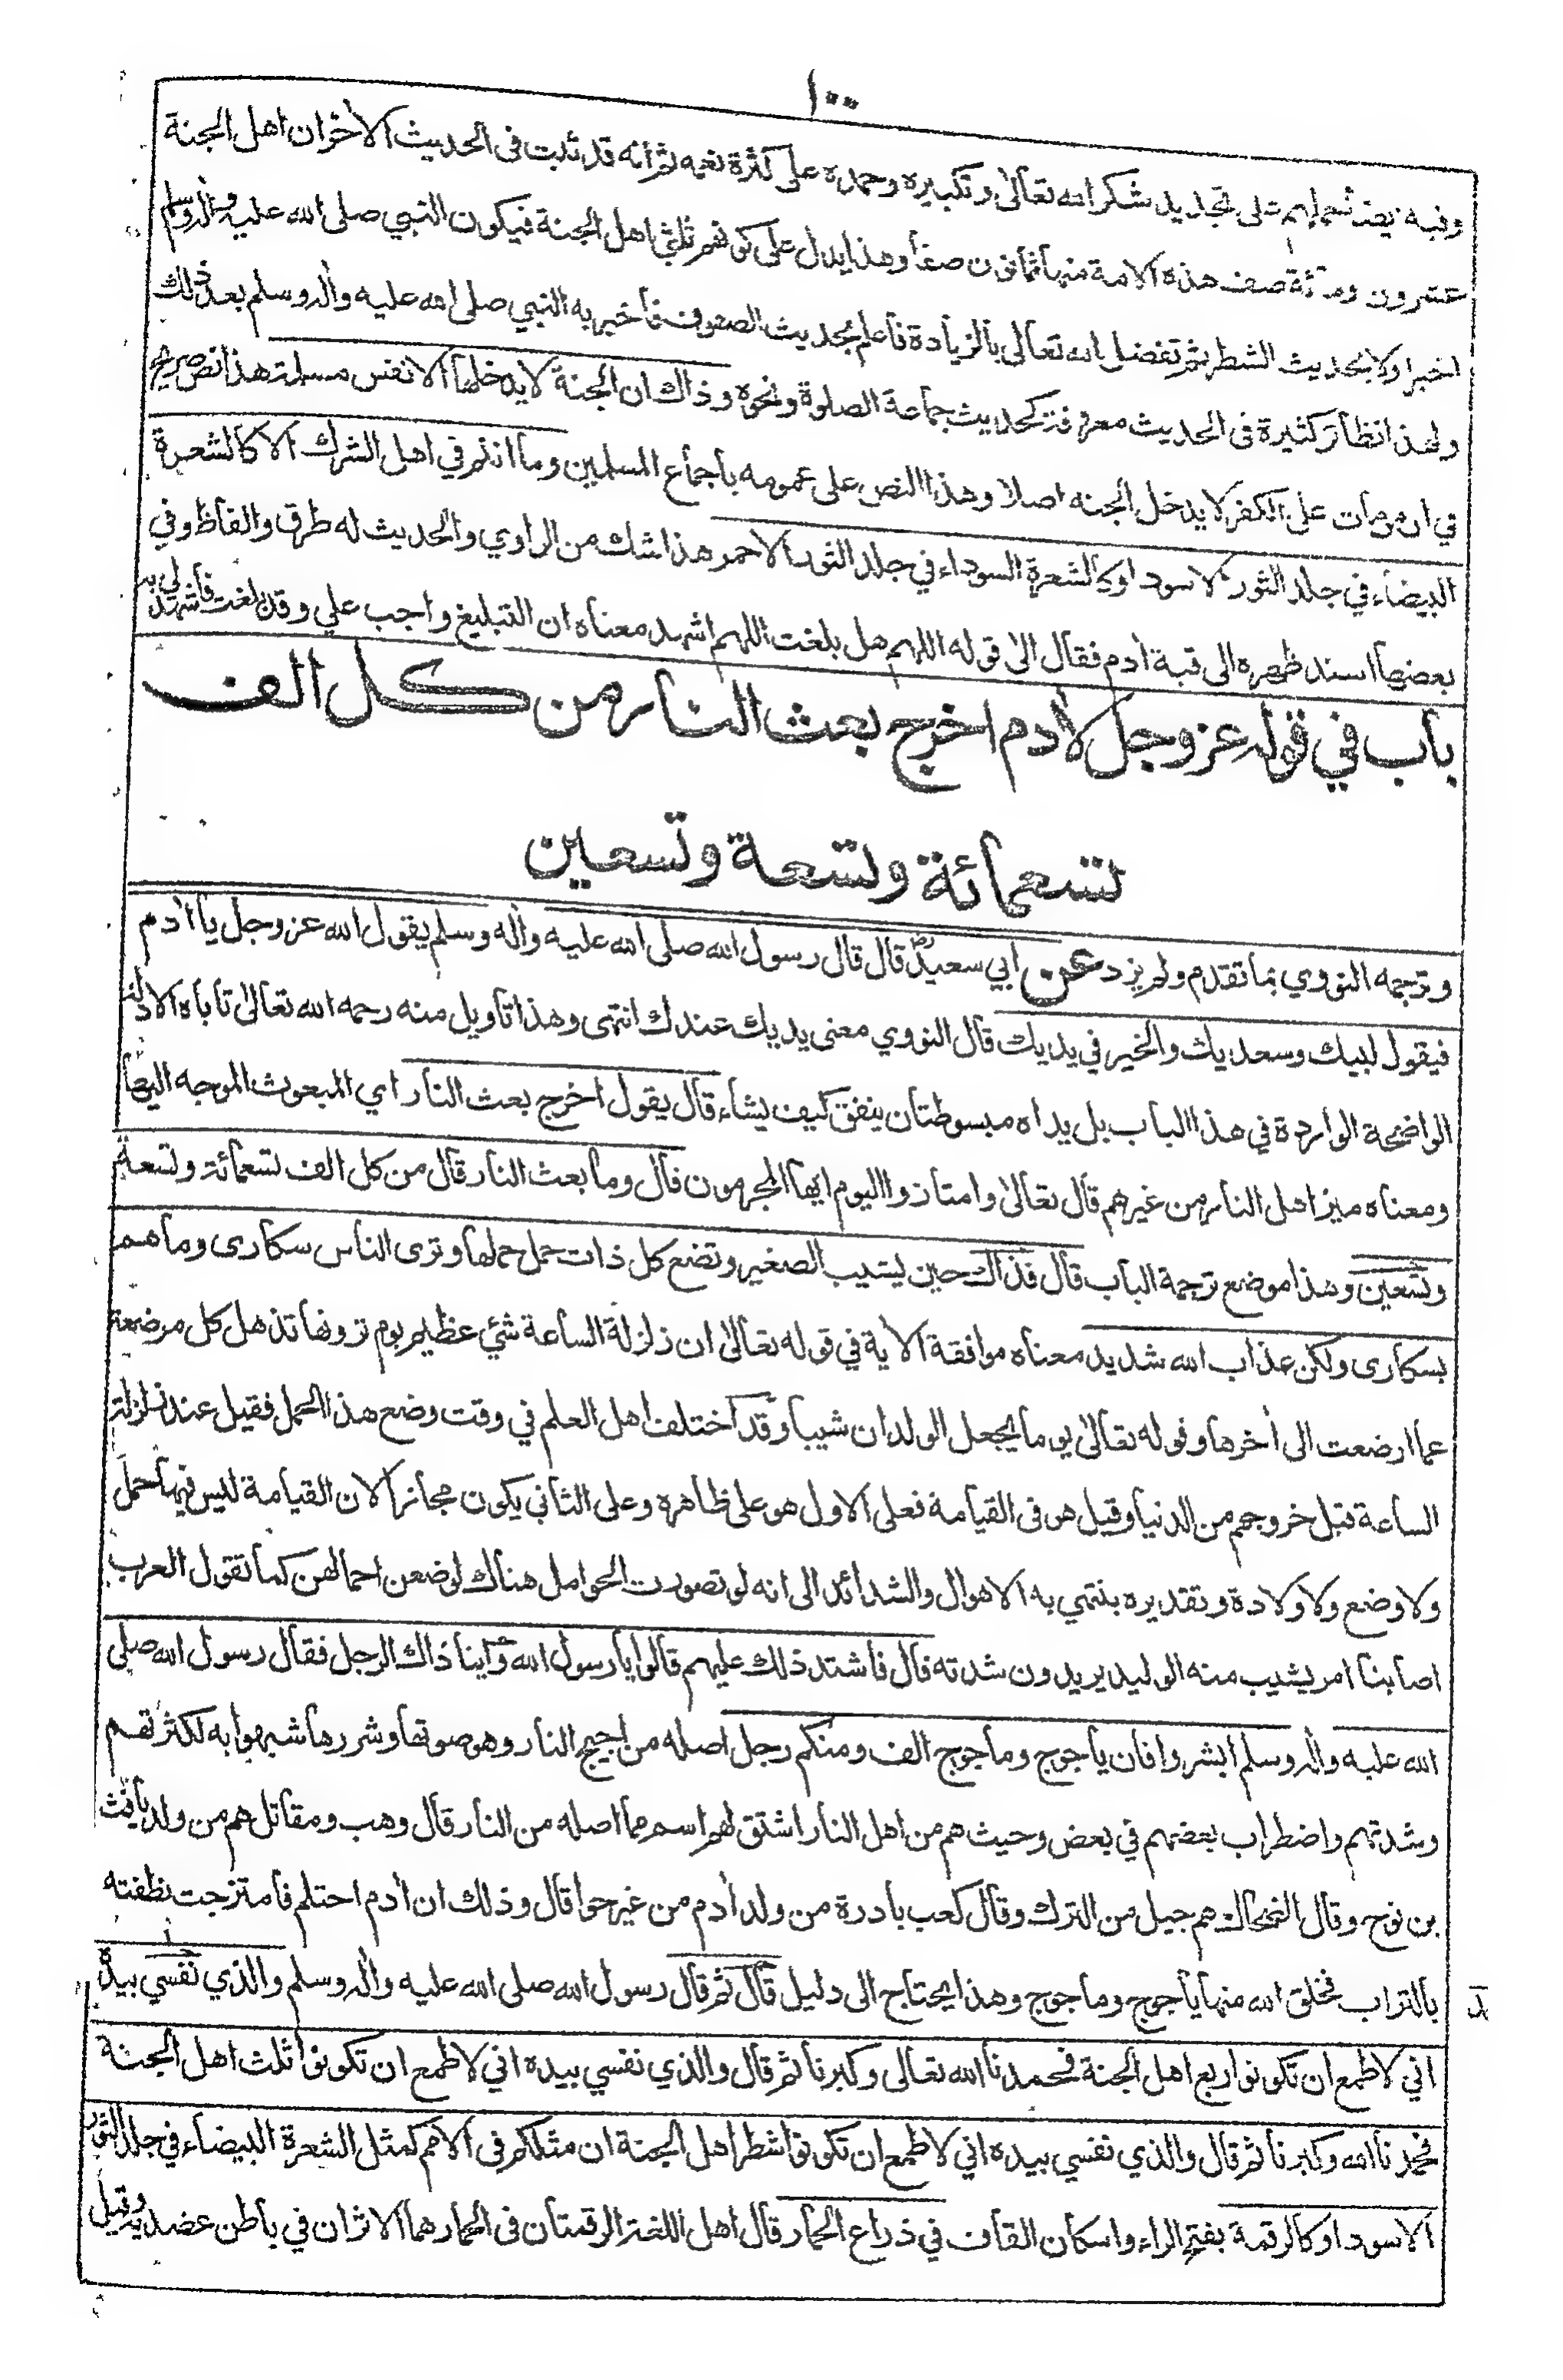 ١٠٠
وفيه ايضا حملهم على تجديد شكر الله تعالى وتكبيره وحمده على كثرة نعمه ثم انه قد ثبت في الحديث الاخر ان اهل الجنة
عشرون ومائة صف هذه الامة منها ثمانون صفا وهذا يدل على كونهم ثلثي اهل الجنة فيكون النبي صلى الله عليه وآله وسلم
اخبر اولا بحديث الشطر ثم تفضل الله تعالى بالزيادة فاعلم بحديث الصفوف فاخبر به النبي صلى الله عليه وآله وسلم بعد ذلك
ولهذا نظائر كثيرة في الحديث معروفة كحديث جماعة الصلوة ونحوه وذاك ان الجنة لا يدخلها الا نفس مسلمة هذا نص صريح
في ان من مات على الكفر لا يدخل الجنه اصلا وهذا النص على عمومه باجماع المسلمين وما انتم في اهل الشرك الا كالشعرة
البيضاء في جلد الثور الاسود او كالشعرة السوداء في جلد الثور الاحمر هذا شك من الراوي والحديث له طرق والفاظ وفي
بعضها اسند ظهره الى قبة ادم فقال الى قوله اللهم هل بلغت اللهم اشهد معناه ان التبليغ واجب علي وقد بلغت فاشهد لي به
باب في قوله عز وجل لأدم اخرج بعث النار من كل الف
تسعمائة وتسعة وتسعين
وترجمه النووي بما تقدم ولم يزد عن ابي سعيد رض قال قال رسول الله صلى الله عليه وأله وسلم يقول الله عز وجل يا أدم
فيقول لبيك وسعديك والخير في يديك قال النووي معنى يديك عندك انتهى وهذا تاويل منه رحمه الله تعالى تاباه الادلة
الواضحة الواردة في هذا الباب بل يداه مبسوطتان ينفق كيف يشاء قال يقول اخرج بعث النار اي المبعوث الموجه اليها
ومعناه ميز اهل النار من غيرهم قال تعالى وامتازوا اليوم ايها المجرمون قال وما بعث النار قال من كل الف تسعمائة وتسعة
وتسعين وهذا موضع ترجمة الباب قال فذاك حين يشيب الصغير وتضع كل ذات حمل حملها وترى الناس سكارى وما هم
بسكارى ولكن عذاب الله شديد معناه موافقة الاية في قوله تعالى ان زلزلة الساعة شئ عظيم يوم ترونها تذهل كل مرضعة
عما ارضعت الى أخرها وقوله تعالى يوما يجعل الولدان شيبا وقد اختلف اهل العلم في وقت وضع هذا الحمل فقيل عند زلزلة
الساعة قبل خروجهم من الدنيا وقيل هو في القيامة فعلى الاول هو على ظاهره وعلى الثاني يكون مجازا لان القيامة ليس فيها حمل
ولا وضع ولا ولادة وتقديره ينتهي به الاهوال والشدائد الى انه لو تصورت الحوامل هناك لوضعن احمالهن كما تقول العرب
اصابنا امر يشيب منه الوليد يريدون شدته قال فاشتد ذلك عليهم قالوا يا رسول الله وأينا ذاك الرجل فقال رسول الله صلى
الله عليه وآله وسلم ابشروا فان ياجوج وماجوج الف ومنكم رجل اصله من اجيج النار وهو صوتها وشررها شبهوا به لكثرتهم
وشدتهم واضطراب بعضهم في بعض وحيث هم من اهل النار اشتق لهم اسم مما اصله من النار قال وهب ومقاتل هم من ولد يافث
بن نوح وقال الضحاك هم جيل من الترك وقال كعب بادرة من ولد أدم من غير حوا قال وذلك ان أدم احتلم فامتزجت نطفته
بالتراب فخلق الله منها ياجوج وماجوج وهذا يحتاج الى دليل قال ثم قال رسول الله صلى الله عليه وآله وسلم والذي نفسي بيده
اني لاطمع ان تكونوا ربع اهل الجنة فحمدنا الله تعالى وكبرنا ثم قال والذي نفسي بيده اني لاطمع ان تكونوا ثلث اهل الجنة
فحمدنا الله وكبرنا ثم قال والذي نفسي بيده اني لاطمع ان تكونوا شطر اهل الجنة ان مثلكم في الامم كمثل الشعرة البيضاء في جلد الثور
الاسود او كالرقمة بفتح الراء واسكان القاف في ذراع الحمار قال اهل اللغة الرقمتان في الحمار هما الاثران في باطن عضديه وقيل